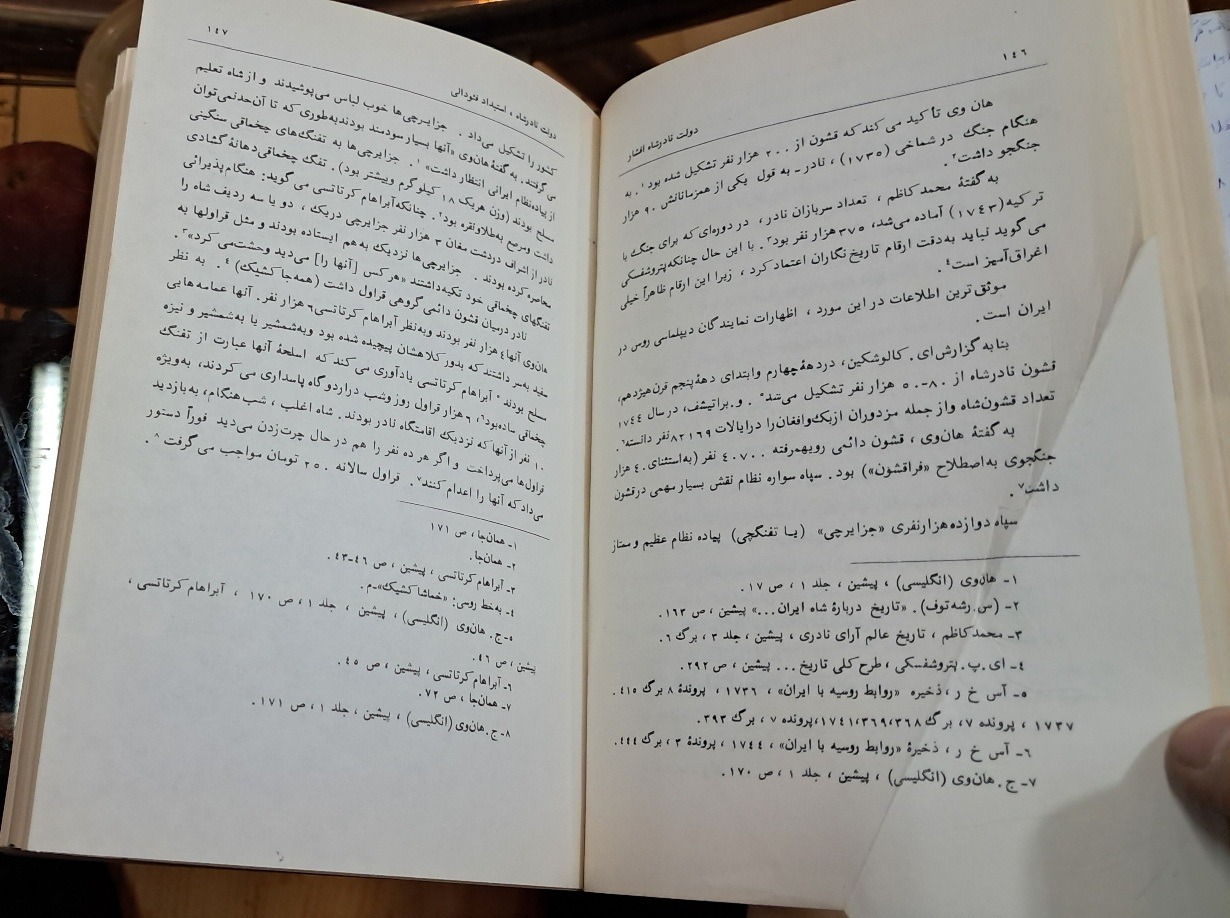 ۱٤٦
دولت نادرشاه افشار
هان وی تأکید می‌کند که قشون از ۲۰۰ هزار نفر تشکیل شده بود۱. به
هنگام جنگ در شماخی (۱۷۳٥) ، نادر ـ به قول یکی از همزمانانش ۹۰ هزار
جنگجو داشت۲.
به گفتهٔ محمدکاظم ، تعداد سربازان نادر ، در دوره‌ای که برای جنگ با
ترکیه (۱۷٤۳) آماده می‌شد، ۳۷٥ هزار نفر بود۳. با این حال چنانکه‌پتروشفسکی
می گوید نباید به‌دقت ارقام تاریخ نگاران اعتماد کرد ، زیرا این ارقام ظاهراً خیلی
اغراق‌آمیز است٤.
موثق‌ترین اطلاعات در این مورد ، اظهارات نمایندگان دیپلماسی روس در
ایران است .
بنا به گزارش ای. کالوشکین، در دههٔ چهارم وابتدای دههٔ پنجم قرن هیژدهم،
قشون نادرشاه از ۸۰-٥۰ هزار نفر تشکیل می‌شد٥ . و. براتیشف، در سال ۱۷٤٤
تعداد قشون‌شاه و از جمله مزدوران ازبک‌وافغان را در ایالات ۸۲۱٦۹ نفر دانسته٦.
به گفتهٔ هان‌وی ، قشون دائمی رویهمرفته ٤۰۷۰۰ نفر (به‌استثنای ٤۰ هزار
جنگجوی به‌اصطلاح «فراقشون») بود . سپاه سواره نظام نقش بسیار سهمی درقشون
داشت۷ .
سپاه دوازده‌هزارنفری «جزایرچی» (یـا تفنگچی) پیاده نظام عظیم و ستاز
۱- هان‌وی (انگلیسی) ، پیشین ، جلد ۱ ، ص ۱۷.
۲- (س. رشه‌توف). «تاریخ دربارهٔ شاه ایران...» پیشین ، ص ۱٦۳.
۳- محمدکاظم ، تاریخ عالم آرای نادری ، پیشین ، جلد ۳ ، برگ ٦.
٤- ای.پ. پتروشفسکی ، طرح کلی تاریخ ... پیشین ، ص ۲۹۲.
٥- آس خ ر ، ذخیره «روابط روسیه با ایران» ، ۱۷۳٦ ، پروندهٔ ۸ برگ ٤۱٥ .
۱۷۳۷ ، پرونده ۷، برگ ۳٦۸،۳٦۹،۱۷٤۱،پرونده ۷ ، برگ ۳۹۳.
٦- آس خ ر ، ذخیرهٔ «روابط روسیه با ایران» ، ۱۷٤٤ ، پروندهٔ ۳ ، برگ ٤٤٤.
۷- ج . هان‌وی (انگلیسی) ، پیشین ، جلد ۱ ، ص ۱۷۰.
۱٤۷
دولت نادرشاه ، استبداد فئودالی
کشور را تشکیل می‌داد . جزایـرچی‌ها خوب لباس می‌پوشیدند و از شاه تعلیم
می گرفتند. به گفتهٔ هان‌وی «آنها بسیار سودمند بودند به‌طوری که تا آن‌حدنمی‌توان
از پیاده‌نظام ایرانی انتظار داشت» ۱. جزایرچی‌ها به تفنگ‌های چخماقی سنگینی
مسلح بودند (وزن هریک ۱۸ کیلوگرم وبیشتر بود). تفک چخماقی‌دهانهٔ گشادی
داشت ومرصع به‌طلاونقره بود۲. چنانکه‌آبراهام کرتاتسی می گوید: هنگام‌پذیرائی
نادر از اشراف دردشت مغان ۳ هزار نفر جزایرچی دریک ، دو یا سه ردیف شاه را
محاصره کرده بودند . جزایرچی‌ها نزدیک به‌هم ایستاده بودند و مثل قراولها به
تفنگهای چخماقی خود تکیه‌داشتند «هرکس [آنها را] می‌دید وحشت‌می کرد»۳.
نادر درمیان قشون دائمی گروهی قراول داشت (همه‌جا کشیک) ٤. به نظر
هان‌وی آنها٤ هزار نفر بودند وبه‌نظر آبراهام کرتاتسی٦ هزار نفر. آنها عمامه‌هایی
سفید به‌سر داشتند که بدور کلاهشان پیچیده شده بود وبه‌شمشیر یا به‌شمشیر و نیزه
مسلح بودند٥ آبراهام کرتاتسی یادآوری می‌کند که اسلحهٔ آنها عبارت از تفنگ
چخماقی ساده‌بود٦، ٦ هزار قراول روز وشب دراردوگاه پاسداری می کردند، به‌ویژه
۱۰ نفر از آنها که نزدیک اقامتگاه نادر بودند . شاه اغلب ، شب هنگام، به‌بازدید
قراول‌ها می‌پرداخت و اگر هر ده نفر را هم در حال چرت‌زدن می‌دید فوراً دستور
می‌داد که آنها را اعدام کنند۷ . قراول سالانه ۲٥۰ تومان مواجب می گرفت ۸.
۱- همان‌جا ، ص ۱۷۱
۲- همان‌جا.
۳- آبراهام کرتاتسی ، پیشین ، ص ٤٦-٤۳.
٤- به‌خط روسی: «خماشا کشیک»-م.
٥- ج. هان‌وی (انگلیسی) ، پیشین ، جلد ۱ ، ص ۱۷۰ ، آبراهام کرتاتسی ،
پیشین ، ص ٤٦.
٦- آبراهام کرتاتسی ، پیشین ، ص ٤٥.
۷- همان‌جا ، ص ۷۲.
۸- ج. هان‌وی (انگلیسی) ، پیشین ، جلد ۱ ، ص ۱۷۱.